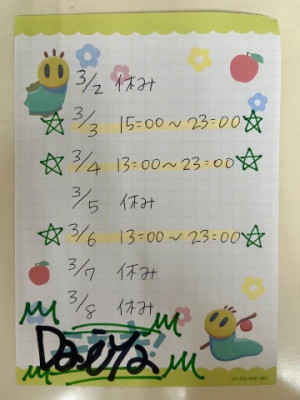 3/2 休み
3/3 15:00～23:00
3/4 13:00～23:00
3/5 休み
3/6 13:00～23:00
3/7 休み
3/8 休み